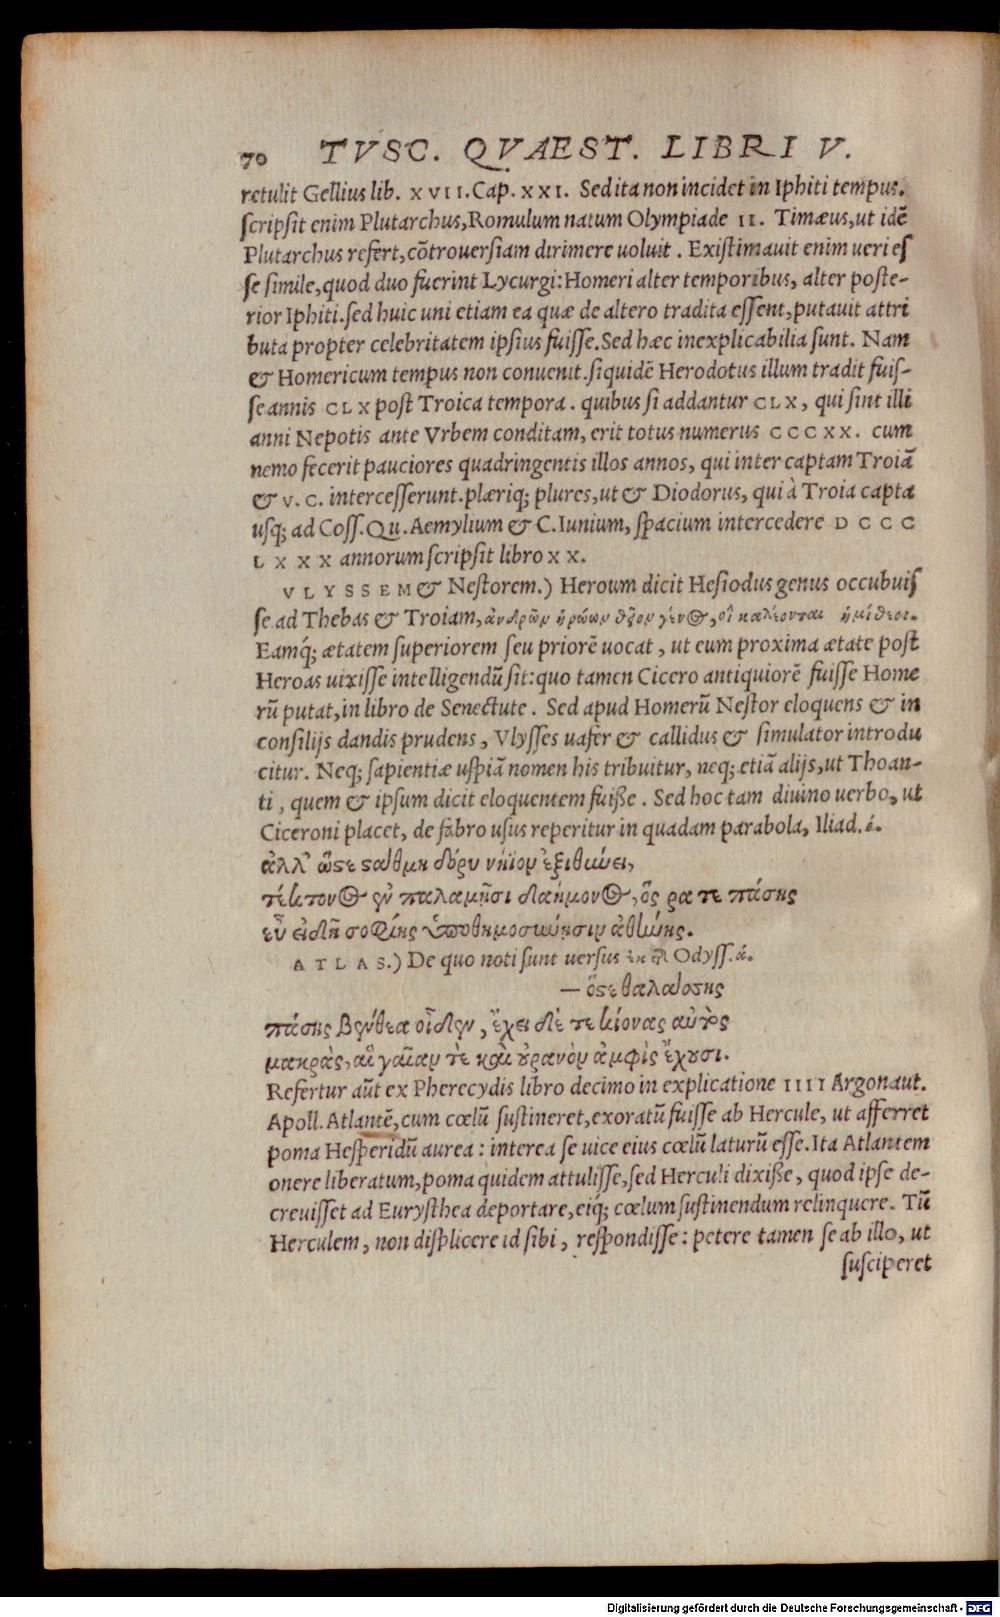 70 TVSC. QVAEST. LIBRI V.
retulit Gellius lib. XVII. Cap. XXI. Sed ita non incidet in Iphiti tempus.
scripsit enim Plutarchus, Romulum natum Olympiade II. Timæus, ut idẽ
Plutarchus refert, cõtrouersiam dirimere uoluit. Existimauit enim ueri es
se simile, quod duo fuerint Lycurgi: Homeri alter temporibus, alter poste-
rior Iphiti. sed huic uni etiam ea quæ de altero tradita essent, putauit attri
buta propter celebritatem ipsius fuisse. Sed hæc inexplicabilia sunt. Nam
& Homericum tempus non conuenit. siquidẽ Herodotus illum tradit fuis-
se annis CLX post Troica tempora. quibus si addantur CLX, qui sint illi
anni Nepotis ante Vrbem conditam, erit totus numerus CCCXX. cum
nemo fecerit pauciores quadringentis illos annos, qui inter captam Troiã
& V. C. intercesserunt. plæriq; plures, ut & Diodorus, qui à Troia capta
usq; ad Coss. Qu. Aemylium & C. Iunium, spacium intercedere DCCC
LXXX annorum scripsit libro XX.
VLYSSEM & Nestorem.) Heroum dicit Hesiodus genus occubuis
se ad Thebas & Troiam, ἀνδρῶν ἡρώων θεῖον γένος, οἳ καλέονται ἡμίθεοι.
Eamq́; ætatem superiorem seu priorẽ uocat, ut eum proxima ætate post
Heroas uixisse intelligendũ sit: quo tamen Cicero antiquiorẽ fuisse Home
rũ putat, in libro de Senectute. Sed apud Homerũ Nestor eloquens & in
consilijs dandis prudens, Vlysses uafer & callidus & simulator introdu
citur. Neq; sapientiæ uspiã nomen his tribuitur, neq; etiã alijs, ut Thoan-
ti, quem & ipsum dicit eloquentem fuiße. Sed hoc tam diuino uerbo, ut
Ciceroni placet, de fabro usus reperitur in quadam parabola, Iliad. ό.
ἀλλ' ὥστε στάθμη δόρυ νήϊον ἐξιθύνει,
τέκτονος ἐν παλάμῃσι δαήμονος, ὅς ῥα τε πάσης
εὖ εἰδῇ σοφίης ὑποθημοσύνῃσιν ἀθήνης.
ATLAS.) De quo noti sunt uersus ἐκ τ Odyss. ά.
— ὅστε θαλάσσης
πάσης βένθεα οἶδεν, ἔχει δέ τε κίονας αὐτὸς
μακρὰς, αἳ γαῖαν τὲ καὶ οὐρανὸν ἀμφὶς ἔχουσι.
Refertur aũt ex Pherecydis libro decimo in explicatione IIII Argonaut.
Apoll. Atlantẽ, cum cœlũ sustineret, exoratũ fuisse ab Hercule, ut afferret
poma Hesperidũ aurea: interea se uice eius cœlũ laturũ esse. Ita Atlantem
onere liberatum, poma quidem attulisse, sed Herculi dixiße, quod ipse de-
creuisset ad Eurysthea deportare, eiq́; cœlum sustinendum relinquere. Tũ
Herculem, non displicere id sibi, respondisse: petere tamen se ab illo, ut
susciperet
Digitalisierung gefördert durch die Deutsche Forschungsgemeinschaft - DFG